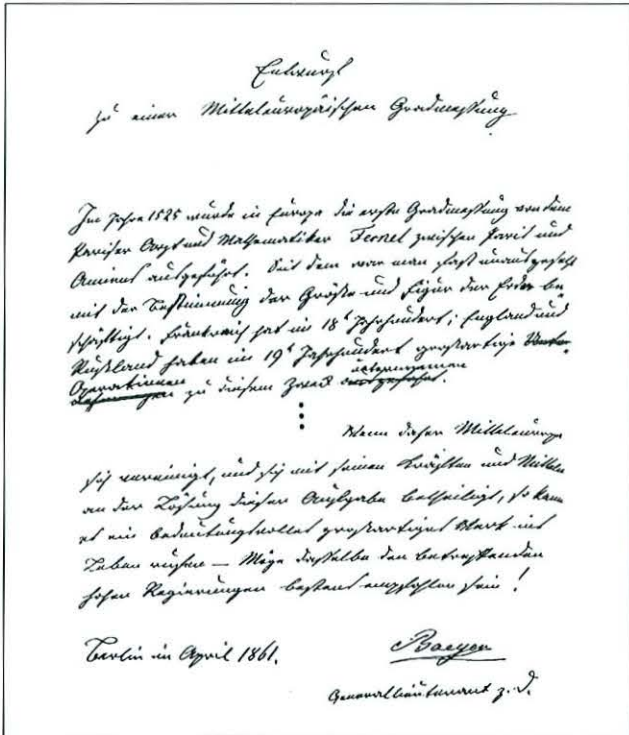 Entwurf
zu einer Mitteleuropäischen Gradmessung
Im Jahre 1525 wurde in Europa die erste Gradmessung von dem
Pariser Arzt und Mathematiker Fernel zwischen Paris und
Amiens ausgeführt. Seit dem war man fast unausgesetzt
mit der Bestimmung der Größe und Figur der Erde be
schäftigt. Frankreich hat im 18t Jahrhundert; England und
Rußland haben im 19t Jahrhundert großartige Unter
Operationen unternommen
nehmungen zu diesem Zweck ausgeführt.
Wenn daher Mitteleuropa
sich vereinigt, und sich mit seinen Kräften und Mitteln
an der Lösung dieser Aufgabe betheiligt, so kann
es ein bedeutungsvolles großartiges Werk ins
Leben rufen — Möge dasselbe den betreffenden
hohen Regierungen bestens empfohlen sein!
Berlin im April 1861. Baeyer
Generallieutenant z. D.